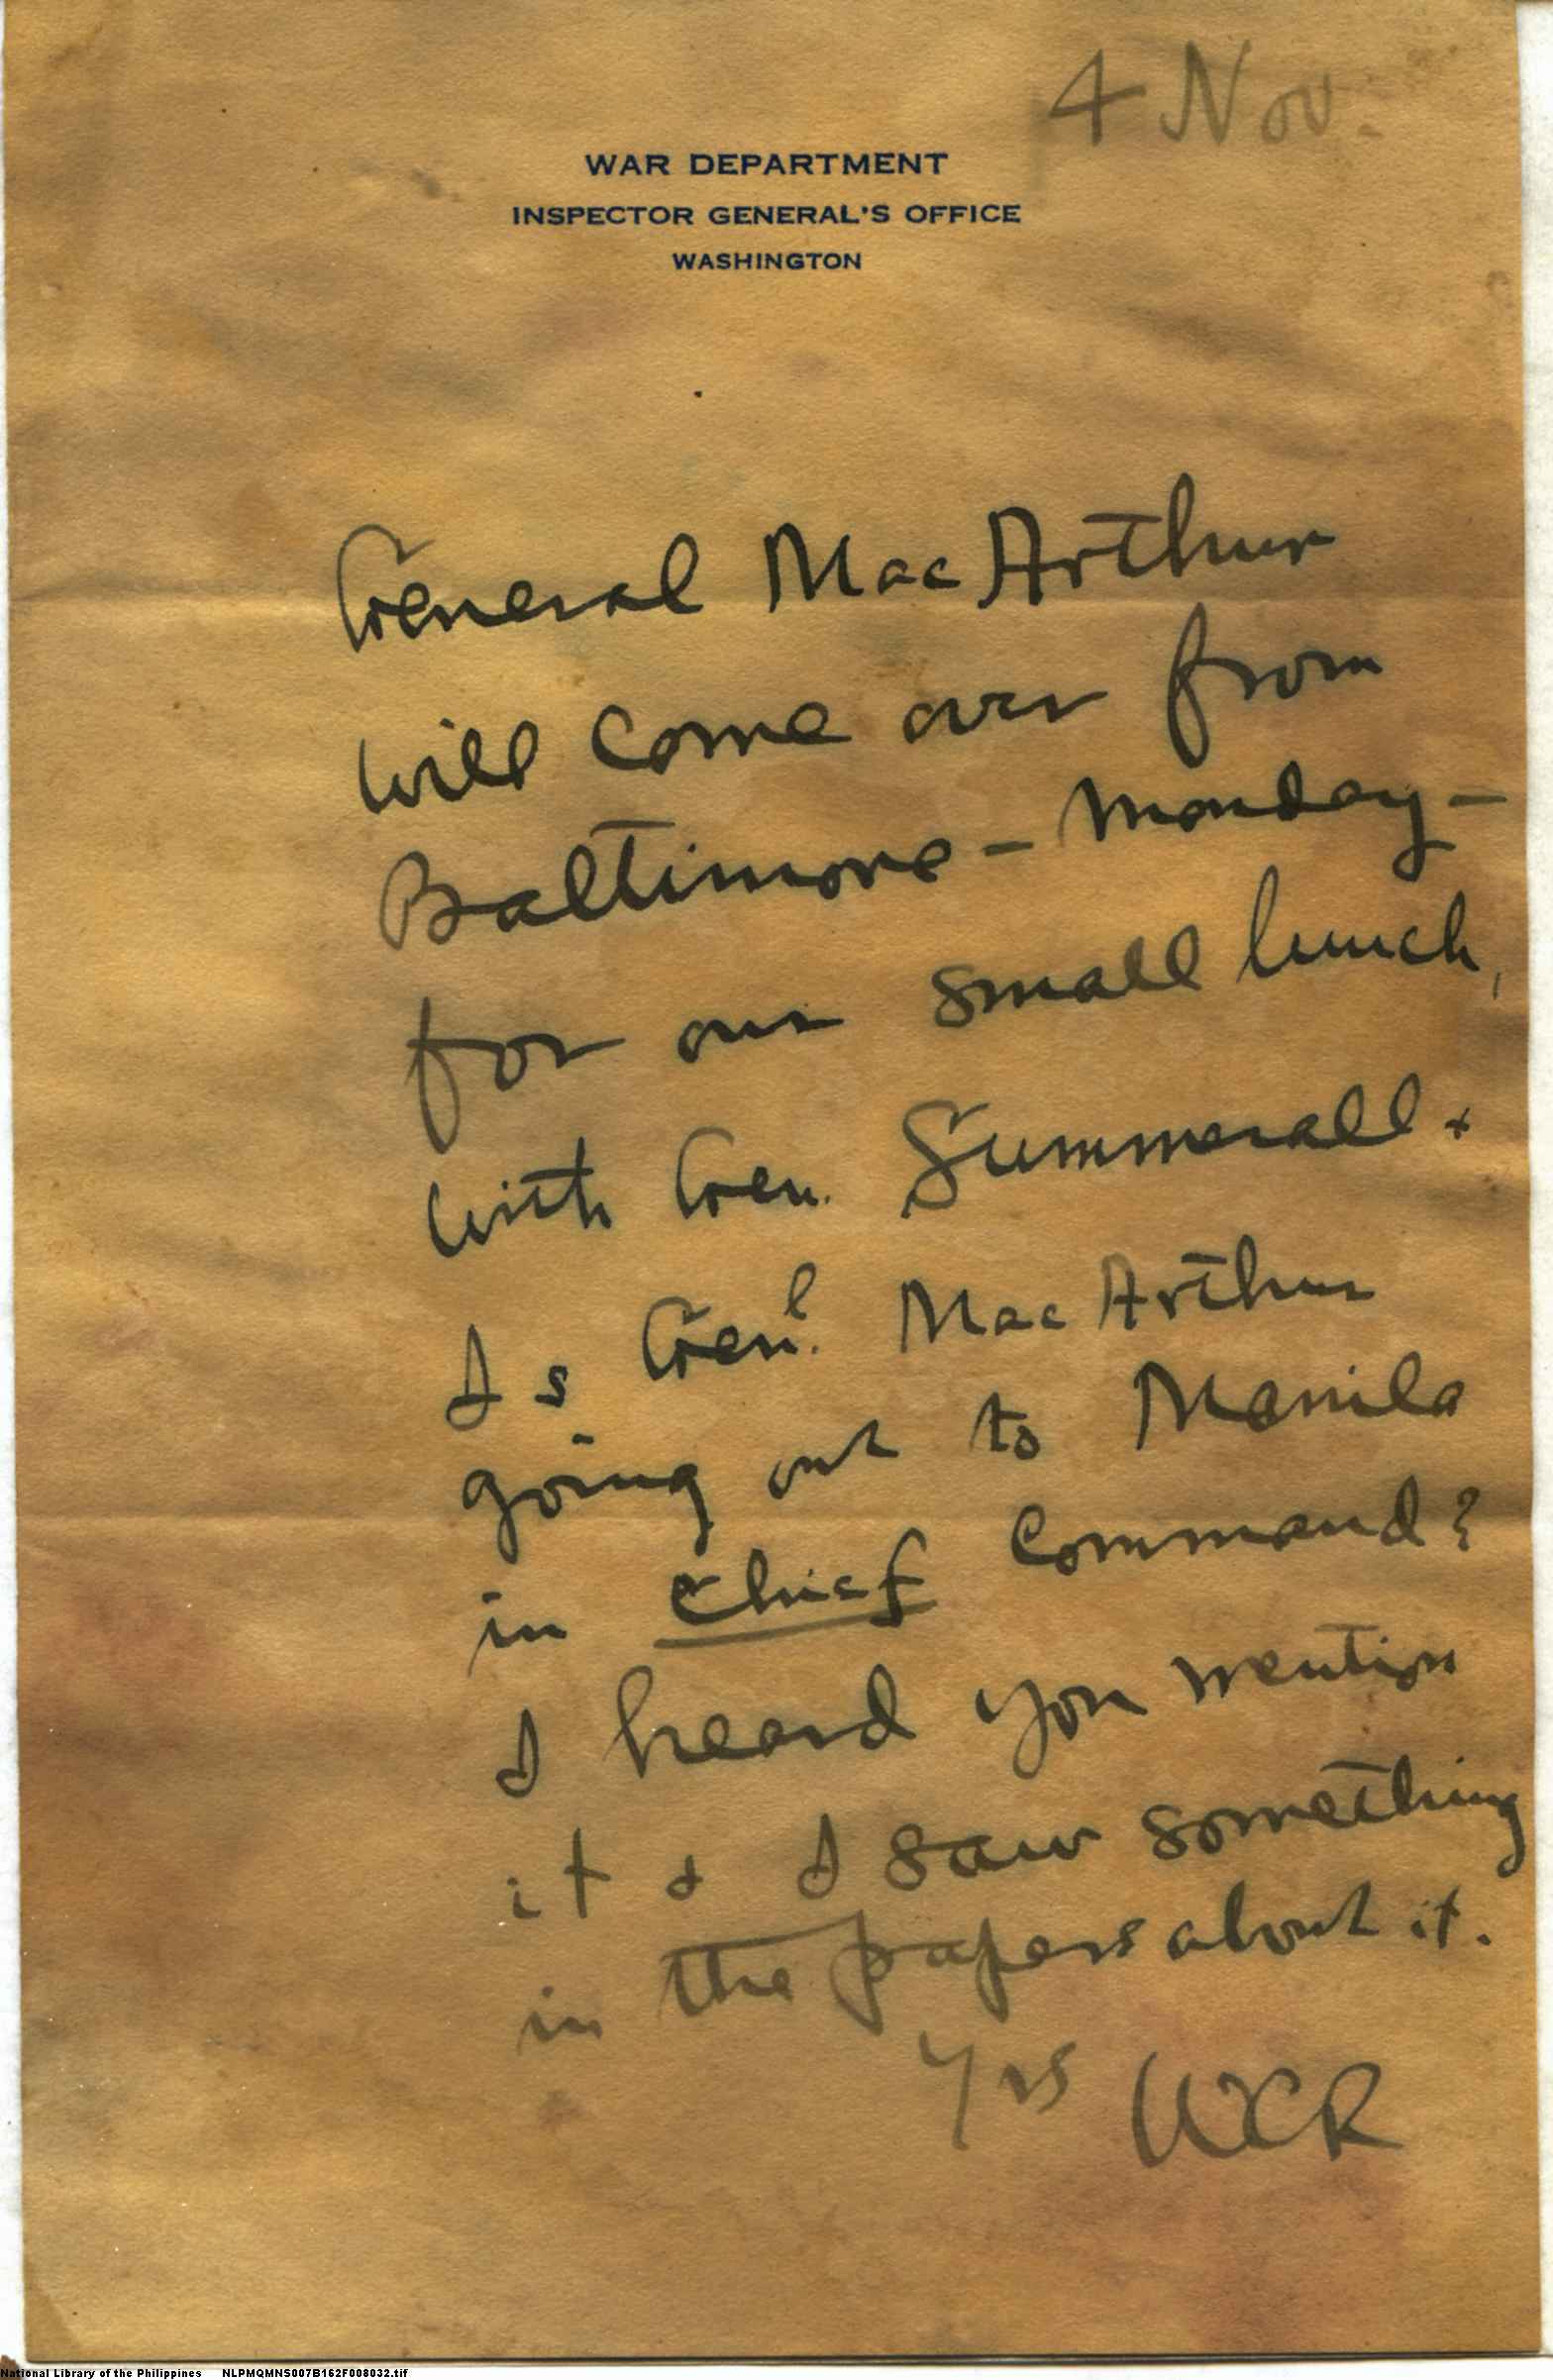 4 Nov.
WAR DEPARTMENT
INSPECTOR GENERAL'S OFFICE
WASHINGTON
General MacArthur
will come over from
Baltimore – Monday –
for our small lunch,
with Gen. Summerall.
Is Genl. MacArthur
going out to Manila
in chief command?
I heard you mention
it & I saw something
in the papers about it.
Yrs WCR
National Library of the Philippines NLPMQMNS007B162F008032.tif